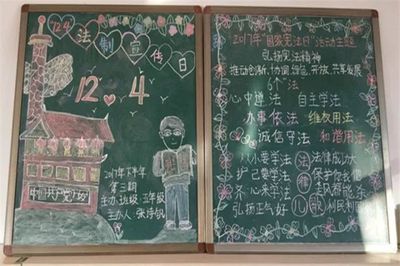 12.4
法制宣传日
12.4
中国共产党万岁
2017年下半年
第三期
主办班级:五年级
主办人:张诗钒
2017年“国家宪法日”活动主题
弘扬宪法精神
推动创新、协调、绿色、开放、共享发展
6个“法”
心中遵法 自主学法
办事依法 维权用法
诚信守法 和谐用法
从小要学法
法律
冬
学法
弘扬正气好
法律儿歌
利民利